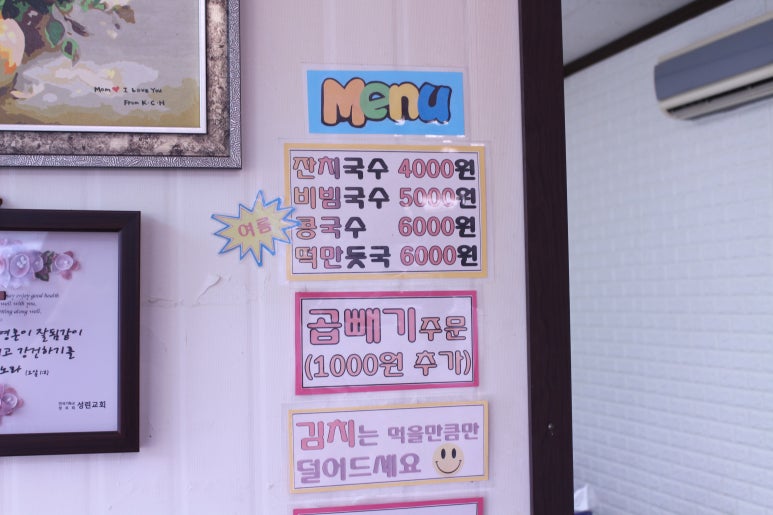 Mom♥ I Love You
From K·C·H
Menu
잔치국수 4000원
비빔국수 5000원
여름
콩국수 6000원
떡만둣국 6000원
곱빼기주문
(1000원 추가)
김치는 먹을만큼만
덜어드세요
enjoy good health
well with you,
영혼이 잘됨같이
고 강건하기를
노라
성린교회